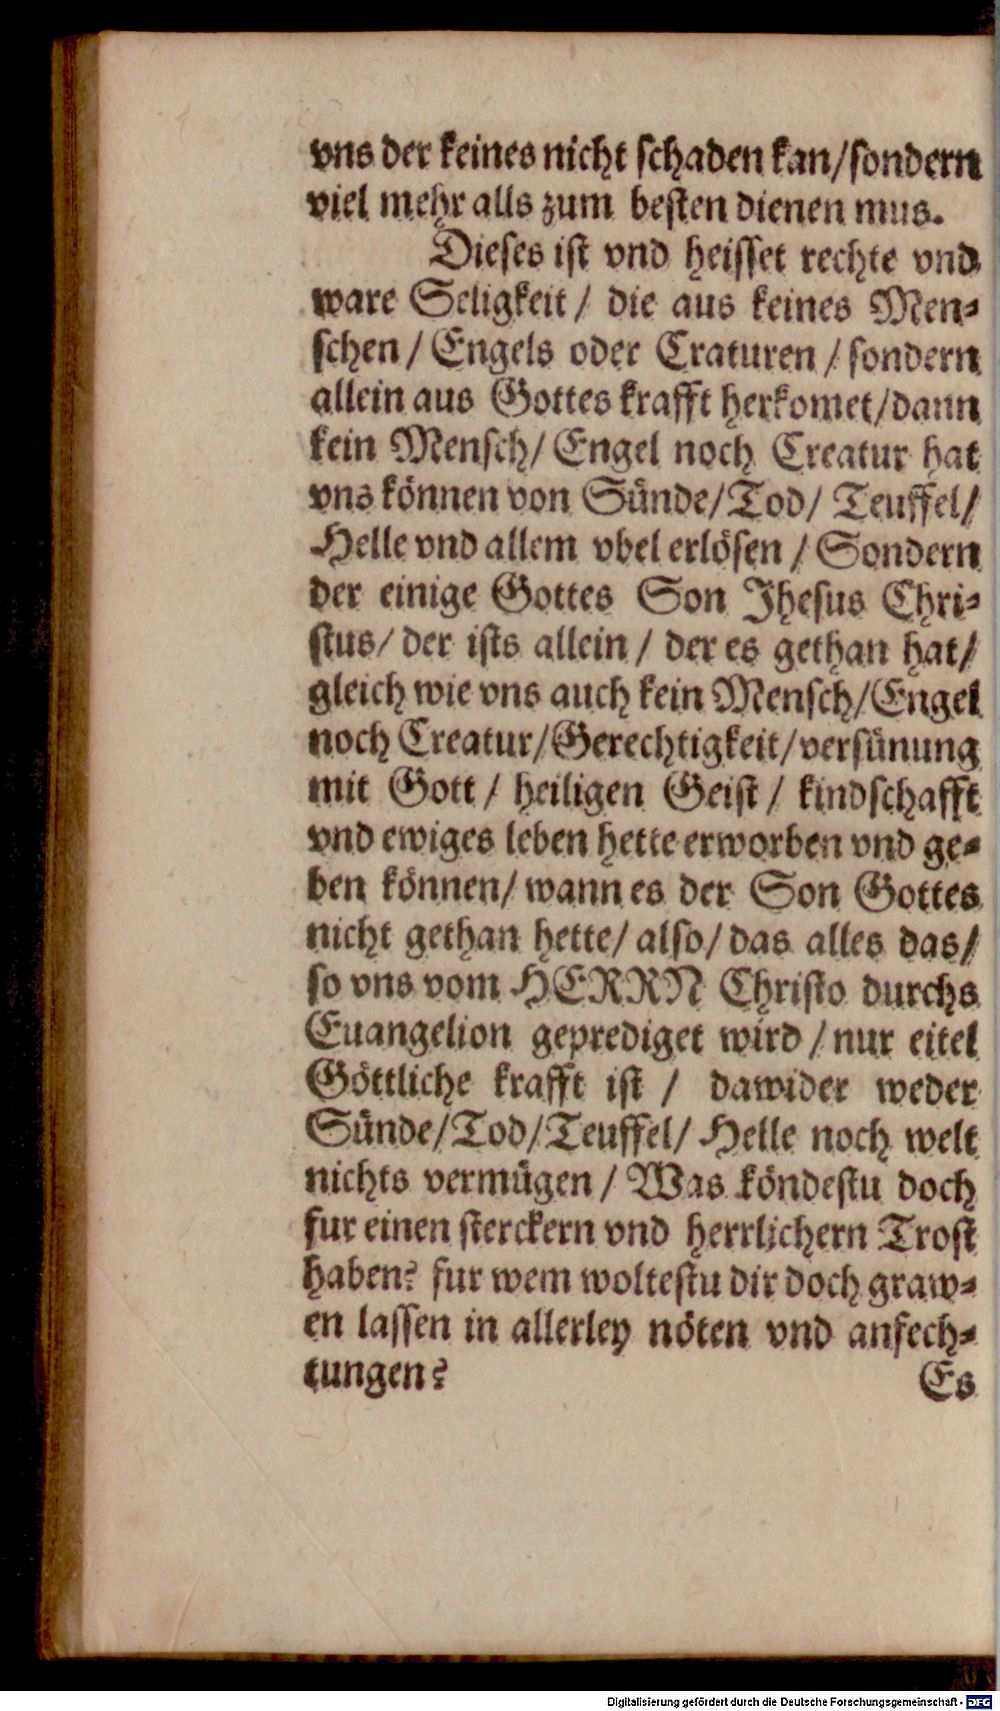 vns der keines nicht schaden kan/sondern
viel mehr alls zum besten dienen mus.
Dieses ist vnd heisset rechte vnd
ware Seligkeit / die aus keines Men-
schen / Engels oder Craturen / sondern
allein aus Gottes krafft herkomet/dann
kein Mensch/ Engel noch Creatur hat
vns können von Sünde/Tod/ Teuffel/
Helle vnd allem vbel erlösen / Sondern
der einige Gottes Son Jhesus Chri-
stus/ der ists allein / der es gethan hat/
gleich wie vns auch kein Mensch/Engel
noch Creatur/Gerechtigkeit/versünung
mit Gott / heiligen Geist / kindschafft
vnd ewiges leben hette erworben vnd ge-
ben können/ wann es der Son Gottes
nicht gethan hette/ also/ das alles das/
so vns vom HERRN Christo durchs
Euangelion geprediget wird / nur eitel
Göttliche krafft ist / dawider weder
Sünde/Tod/Teuffel/ Helle noch welt
nichts vermügen / Was köndestu doch
fur einen sterckern vnd herrlichern Trost
haben? fur wem woltestu dir doch graw-
en lassen in allerley nöten vnd anfech-
tungen? Es
Digitalisierung gefördert durch die Deutsche Forschungsgemeinschaft - DFG